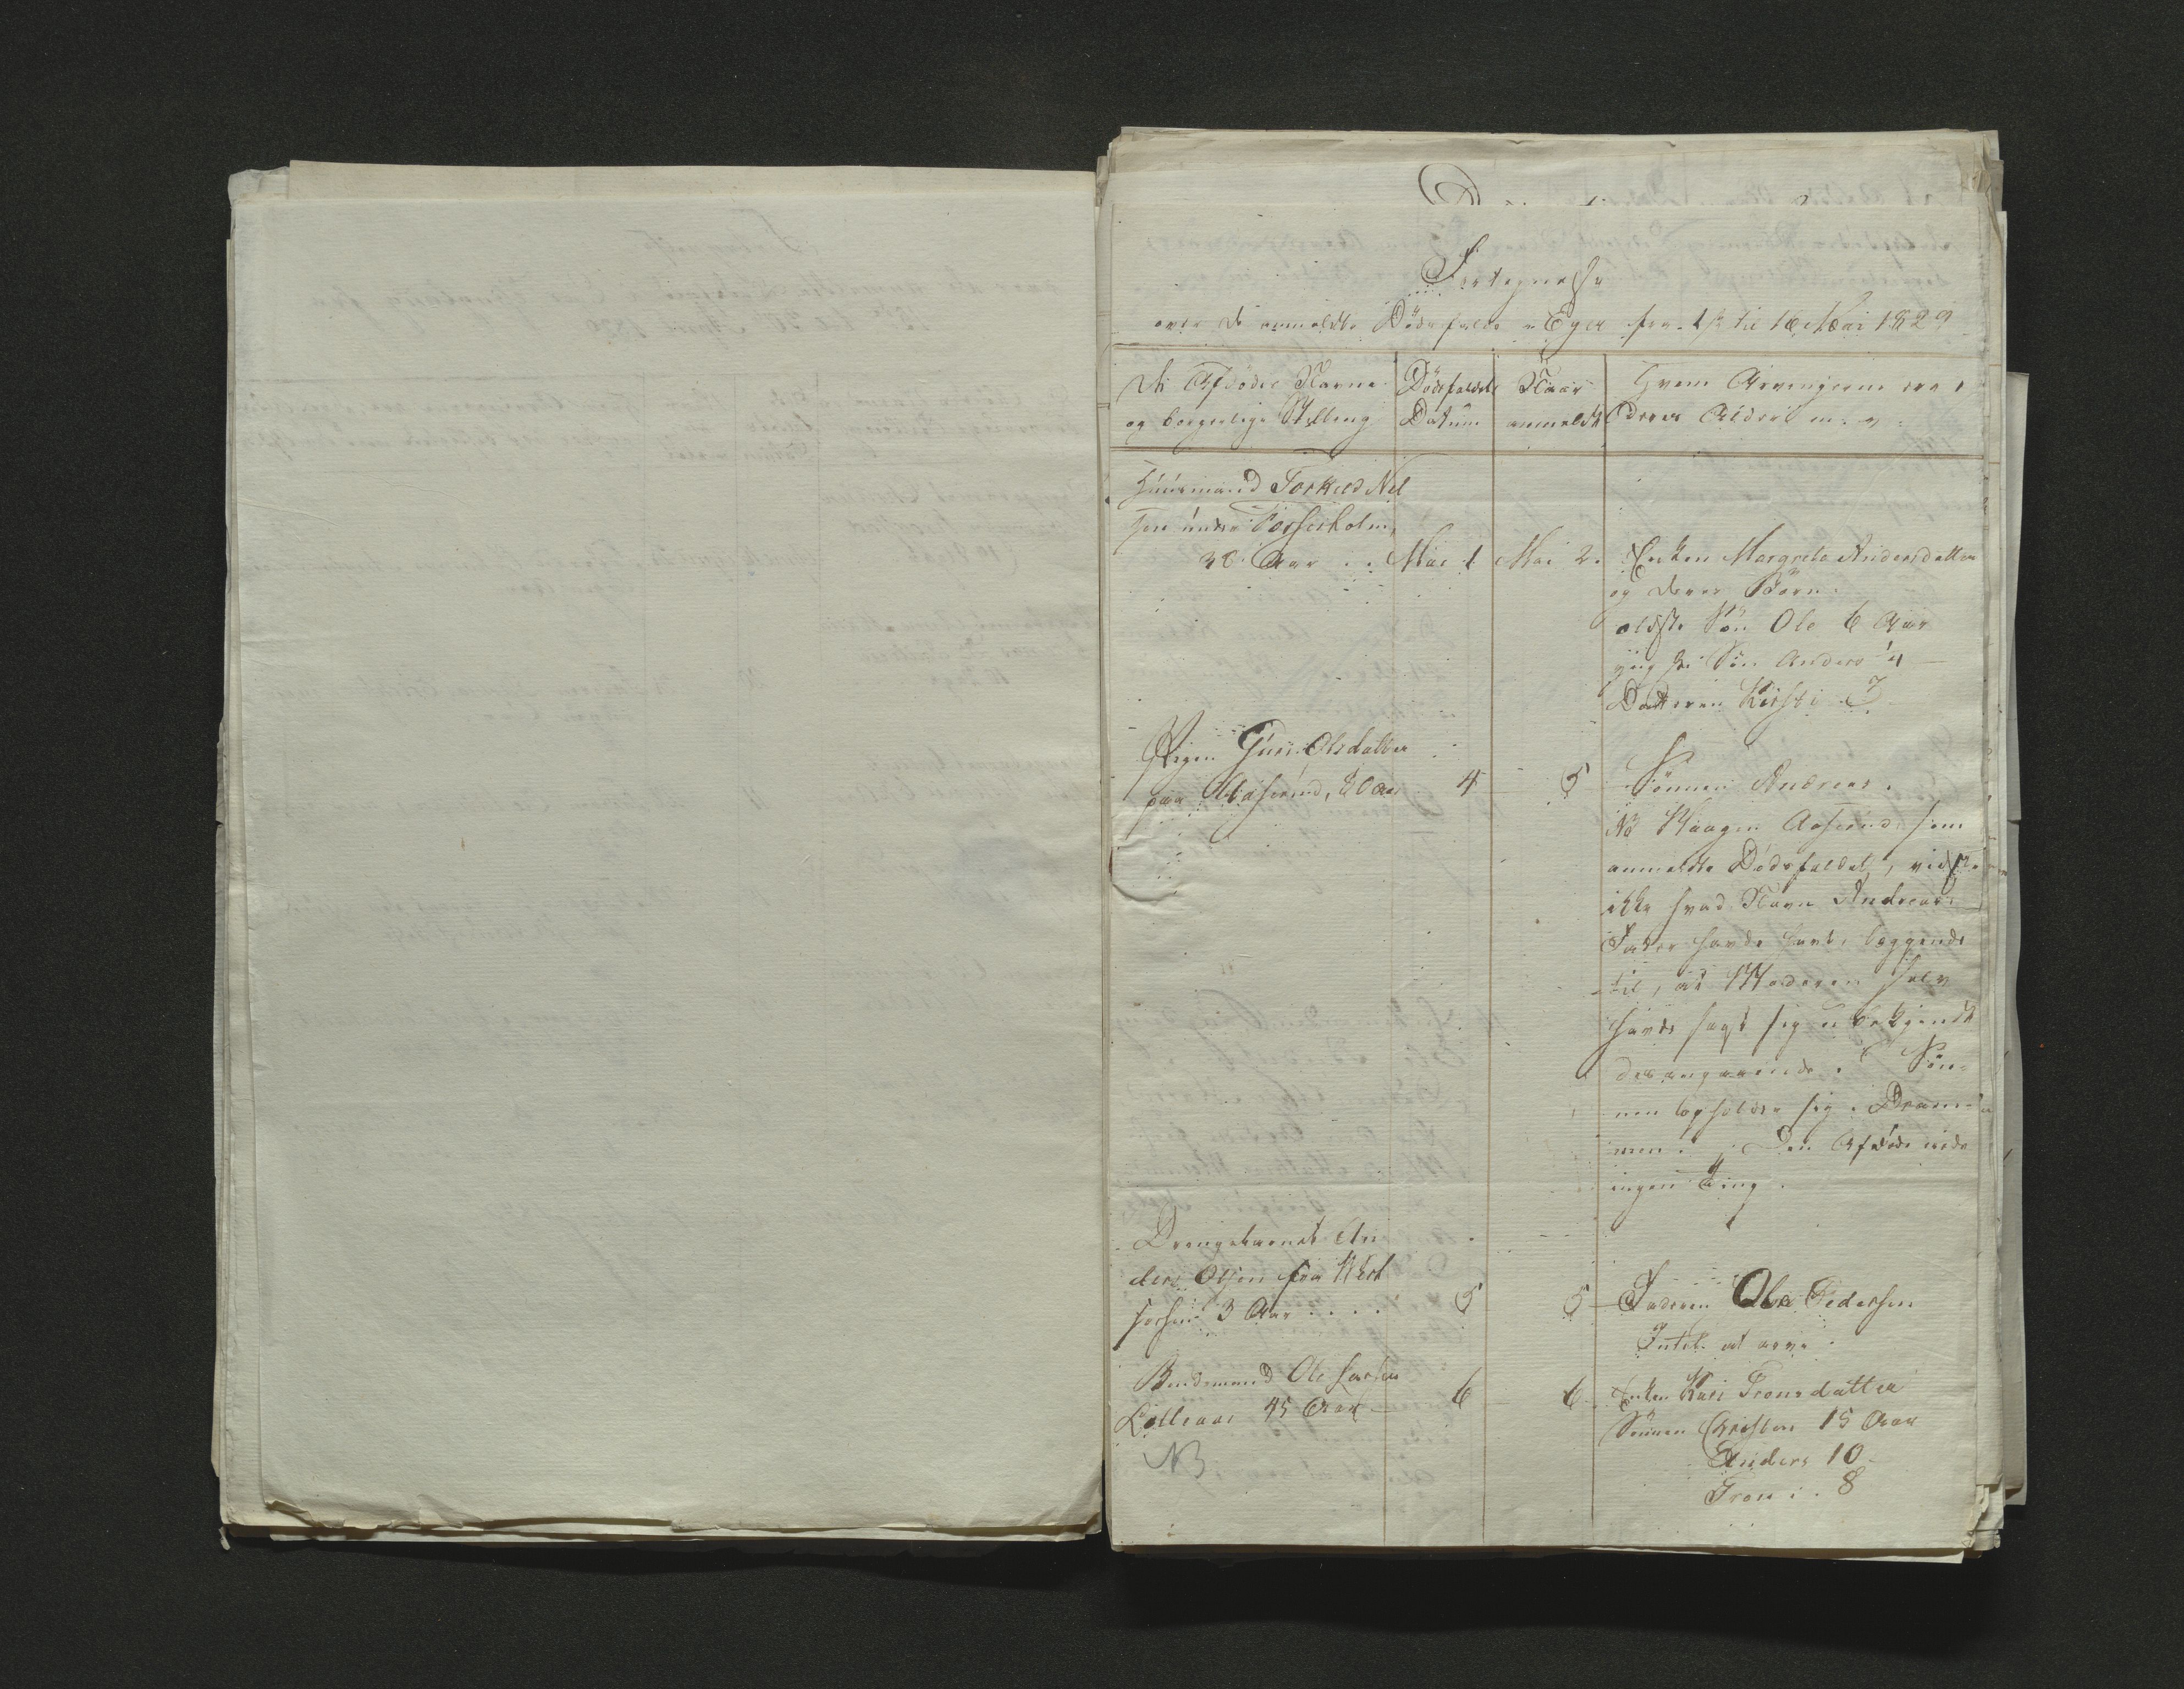 Fortegnelse
over de anmeldte Dödsfalde i Eger fra 1ste til 16 Mai 1829
De Afdödes Navne
og borgerlige Stilling
Dödsfaldets
Datum
Naar
anmeldt
Hvem Arvingerne ere,
deres Alder m. v.
Huusmand Torkild Nil
sen under Fosserholm,
30 Aar . . Mai 1 Mai 2.
Enken Margrete Andersdatter
og deres Börn.
eldste Sön Ole 6 Aar
yngste Sön Anders 4 —
Datteren Kirsti 3
Pigen Guri Olsdatter
paa Aaserud, 80 Aar 4 5
Sönnen Andreas.
NB Haagen Aaserud som
anmeldte Dödsfaldet, vidste
ikke hvad Navn Andreas's
Fader havde havt, læggende
til, at Moderen selv
havde sagt sig ubekjendt
desangaaende. Sön-
nen opholder sig i Dram-
men. Den Afdöde eiede
ingen Ting.
Drengebarnet An
ders Olsen fra Vest
fossen 3 Aar . . . . 5 5
Faderen Ole Pedersen
Intet at arve
Bondemand Ole
45 Aar — 6 6
Enken Kari Tronsdatter
Sönnen Christen 15 Aar
Anders 10 -
Tron . . 8
NB